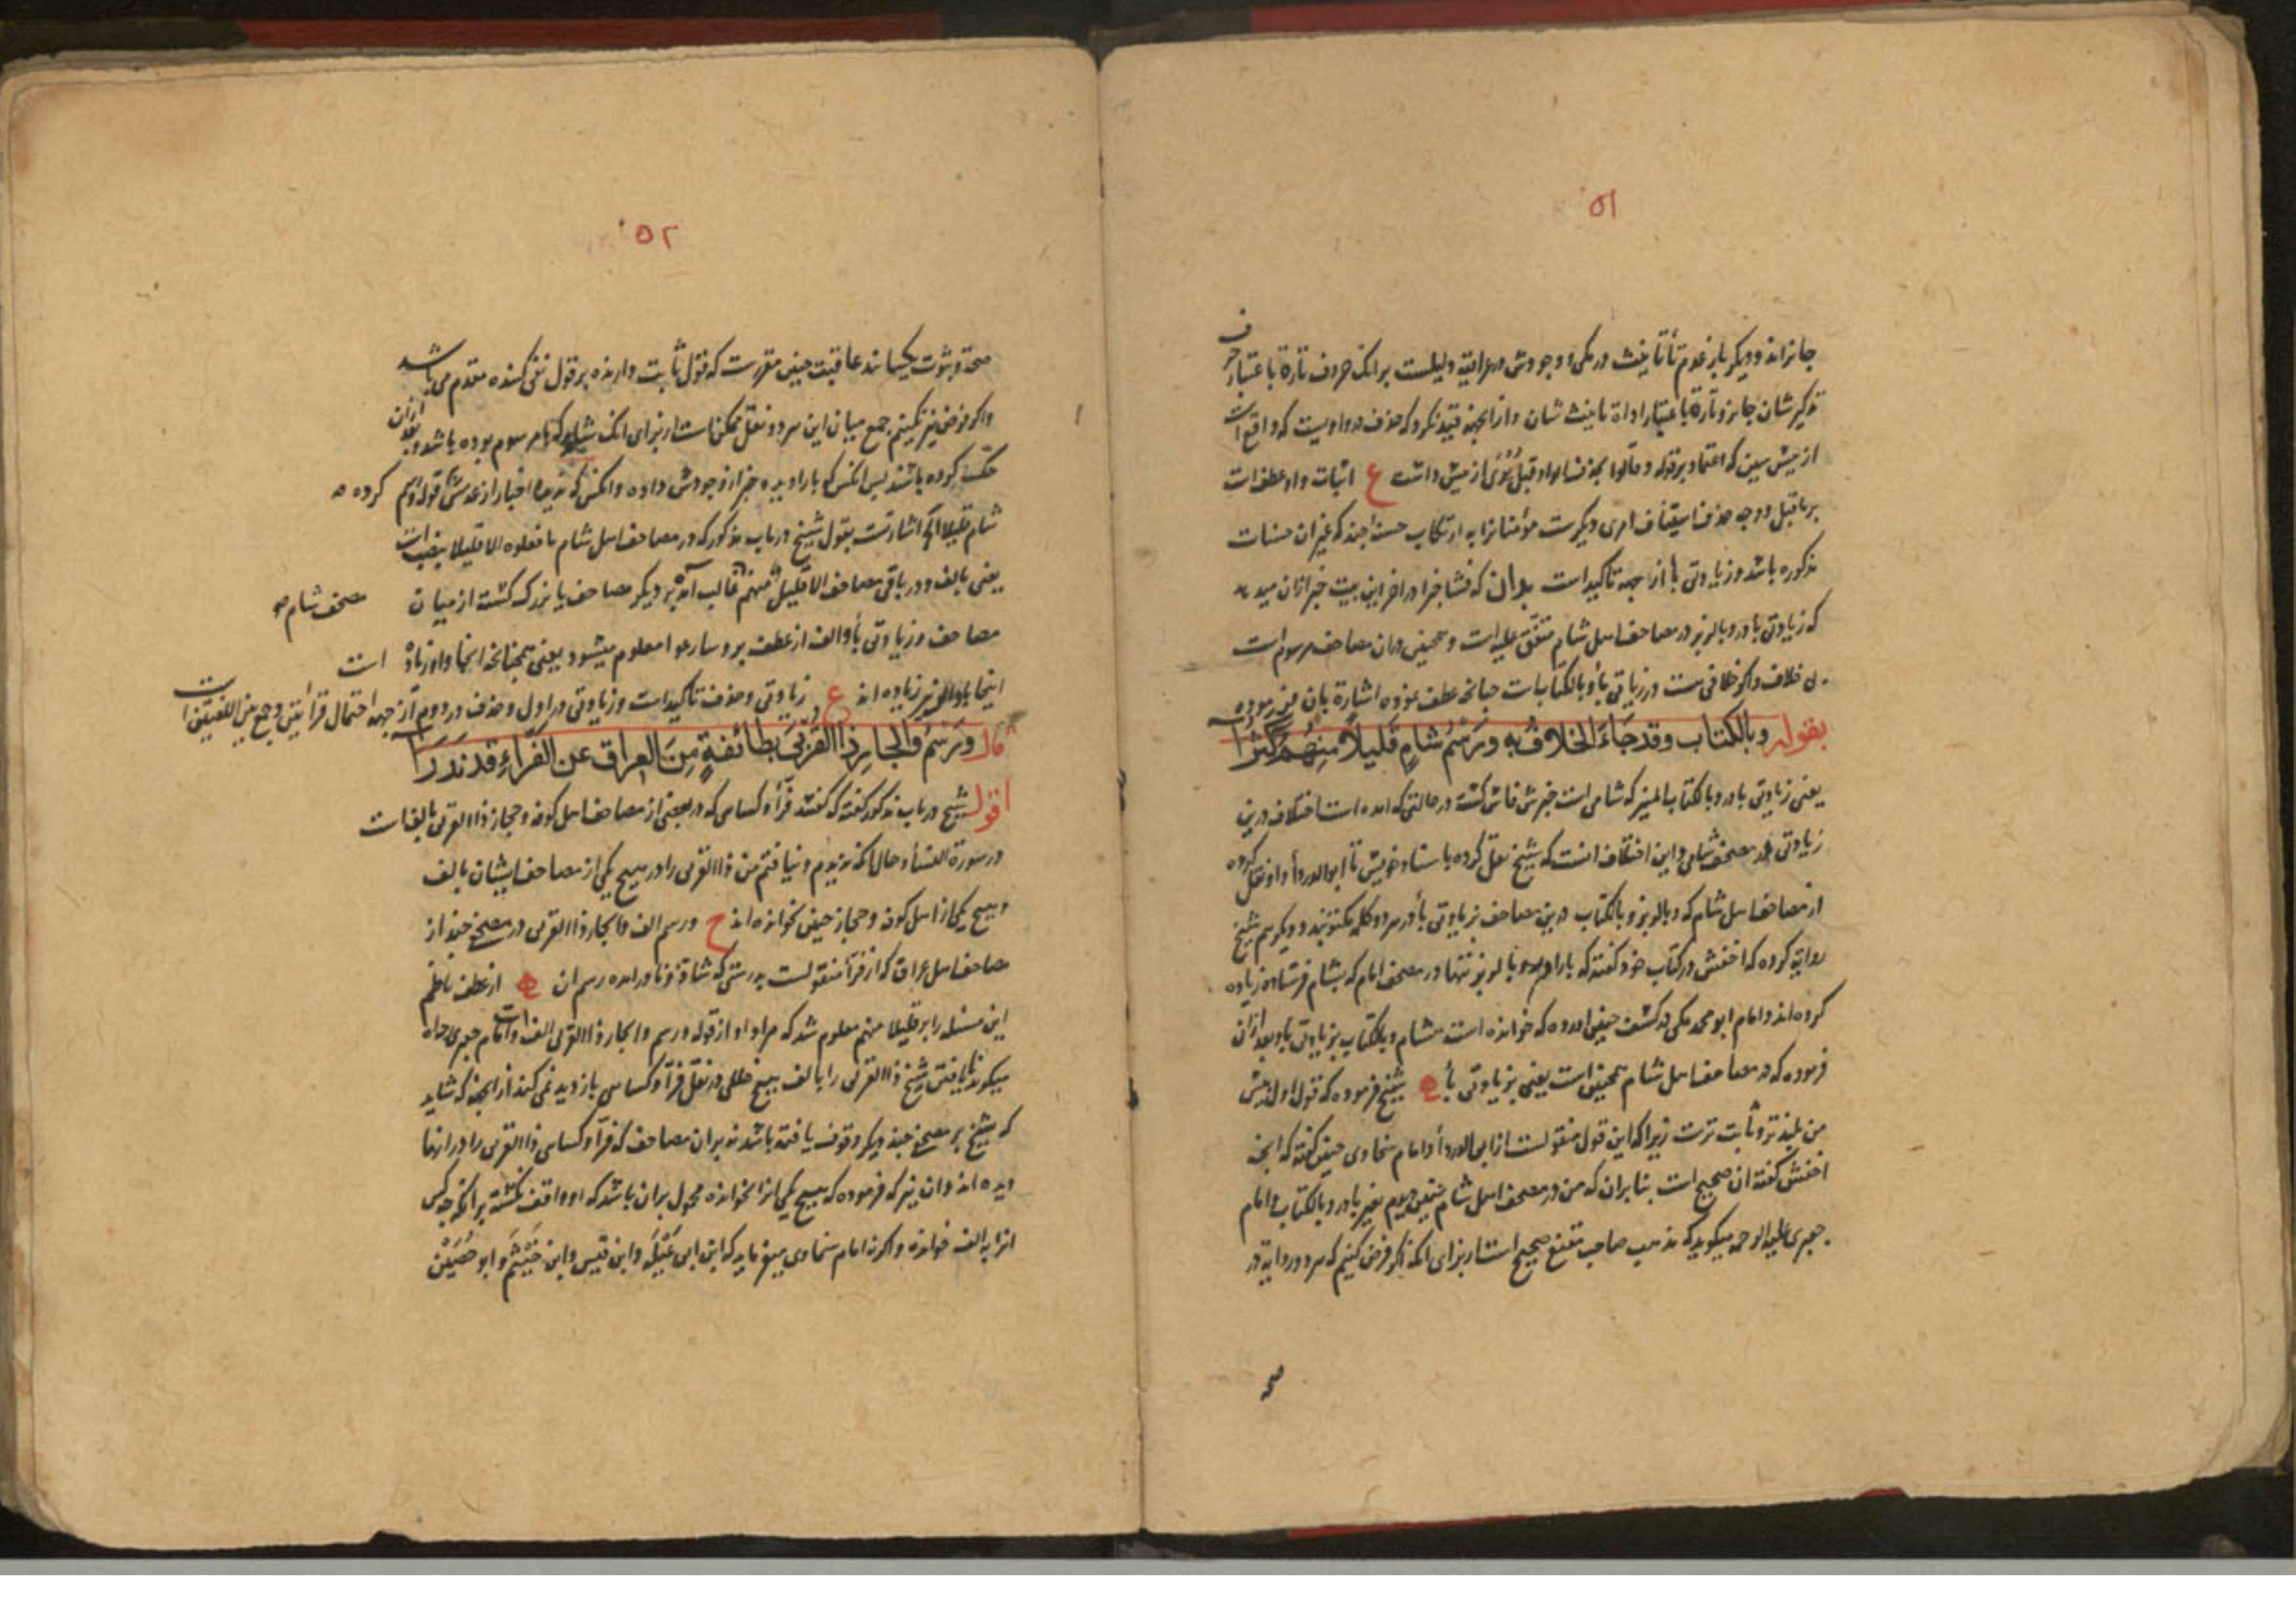 ٥١
جایزاند و دیگر باز عدم تأ تانیث در مکی و وجودش در عراقیة دلیلست بر آنک حروف تارة باعتبار حرف
تذکیر شان جایز و تارة باعتبار اداة تانیث شان و از انجهة قید نکرد که حذف در واویست که واقع است
از پیش سین که اعتماد بر قوله و قالوا بحذف الواو قبل یُرَی از پیش داشت ع اثبات واو عطف است
بر ماقبل و وجه حذف استیناف امری دیگرست مؤمنانرا به ارتکاب حسنه چند که غیر ان حسنات
مذکوره باشد و زیادتی با از جهة تاکید است بدان که فشا خبرا در اخر این بیت خبر ازان میدهد
که زیادتی با در وبالزبر در مصاحف اهل شام متفق علیه است و همچنین در ان مصاحف مرسوم است
بی خلاف و اگر خلافی هست در زیاتی با و بالکتاب است چنانچه عطف نموده اشارة بان می فرموده
بقوله وبالكتاب وقد جاء الخلاف به ورسم شام قليلا منهم كثرا
یعنی زیادتی با در وبالکتاب المنیر که شامی است خبرش فاش گشته در حالتی که امده است اختلاف درین
زیادتی در مصحف شامی و این اختلاف انست که شیخ نقل کرده باسناد خویش تا ابو الدرداء و او نقل کرده
از مصاحف اهل شام که وبالزبر وبالکتاب درین مصاحف بزیادتی با در هر دو کلمه مکتوبند و دیگر هم شیخ
روایة کرده که اخفش در کتاب خود گفته که با را در وبالزبر تنها در مصحف امام که بشام فرستاده زیاده
کرده اند و امام ابو محمد مکی در کشف چنین اورده که خوانده است هشام وبالکتاب بزیادتی با و بعد ازان
فرموده که در مصاحف اهل شام همچنین است یعنی بزیادتی با شیخ فرموده که قول اول پیش
من بلند تر و ثابت ترست زیرا که این قول منقولست از ابی الدرداء و امام سخاوی چنین گفته که انچه
اخفش گفته ان صحیح است بنا بران که من در مصحف اهل شام چنین دیدم بغیر با در وبالکتاب و امام
جعبری علیه الرحمه میگوید که مذهب صاحب مقنع صحیح است از برای انکه اگر فرض کنیم که هر دو روایة در
صحة
٥٢
صحة و ثبوت یکسانند عاقبت چنین مقررست که قول ثابت دارنده بر قول نفی کننده مقدم می باشد
و اگر فرض نیز نکنیم جمع میان این هر دو نقل ممکن است از برای انک شاید که با مرسوم بوده باشد و بعد ازان
حک کرده باشند پس انکس که با را دیده خبر از وجودش داده و انکس که ندیده اخبار از عدمش کرده قوله ورسم
شام قلیلا الخ اشارتست بقول شیخ در باب مذکور که در مصاحف اهل شام ما فعلوه الا قلیلا بنصب است
یعنی بالف و در باقی مصاحف الا قلیل منهم غالب امده بر دیگر مصاحف یا بزرگ گشته از میان مصحف شام
مصاحف و زیادتی با و الف از عطف بر وسارعوا معلوم میشود یعنی همچنانچه انجا واو زیاده است
اینجا با والف نیز زیاده اند ع زیادتی و حذف تاکید است و زیادتی در اول و حذف در دوم از جهة احتمال قرائتین و جمع بین اللغتین است
قال ورسم والجار ذا القربى بطائفة من العراق عن الفراء قد ندرا
اقول شیخ در باب مذکور گفته که گفتند فرّا و کسائی که در بعضی از مصاحف اهل کوفه و حجاز ذا القربی بالف است
در سورة النسأ و حال انکه ندیدم و نیافتم من ذا القربی را در هیچ یکی از مصاحف ایشان بالف
و هیچ یکی از اهل کوفه و حجاز چنین نخوانده اند ح و رسم الف والجار ذا القربی در مصحفی چند از
مصاحف اهل عراق که از فرّا منقولست بدرستی که شاذ و نادر امده رسم ان از عطف ناظم
این مسئله را بر قلیلا منهم معلوم شد که مراد او از قوله ورسم والجار ذا القربی الف است و امام جعبری رحمه الله
میگوید نایافتن شیخ ذا القربی را بالف هیچ خللی در نقل فرّا و کسائی بازدید نمی کند از انجهة که شاید
که شیخ بر مصحفی چند دیگر وقوف یافته باشد نه بران مصاحف که فرّا و کسائی ذا القربی را در انها
دیده اند و ان نیز که فرموده که هیچ یکی انرا نخوانده محمول بران باشد که او واقف نگشته بر انکه چه کس
انرا به الف خوانده و اگر نه امام سخاوی میفرماید که ابن ابی عَبْلَه و ابن قیس و ابن خیثم و ابو حُصَین